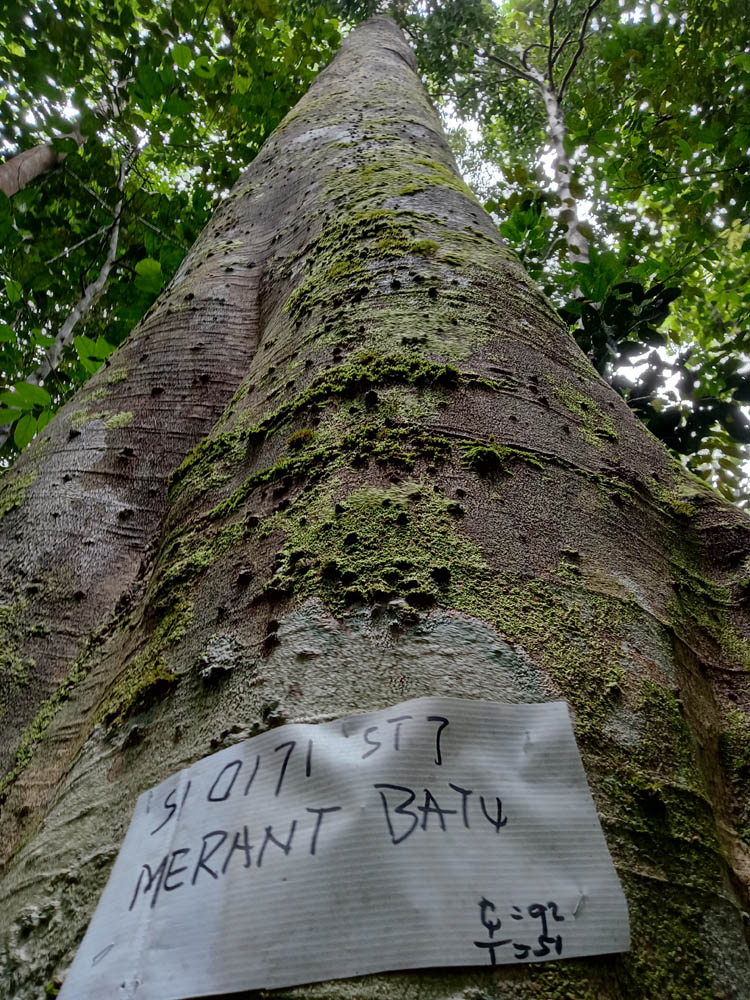 SI 0171 ST 7
MERANTI BATU
T = 51